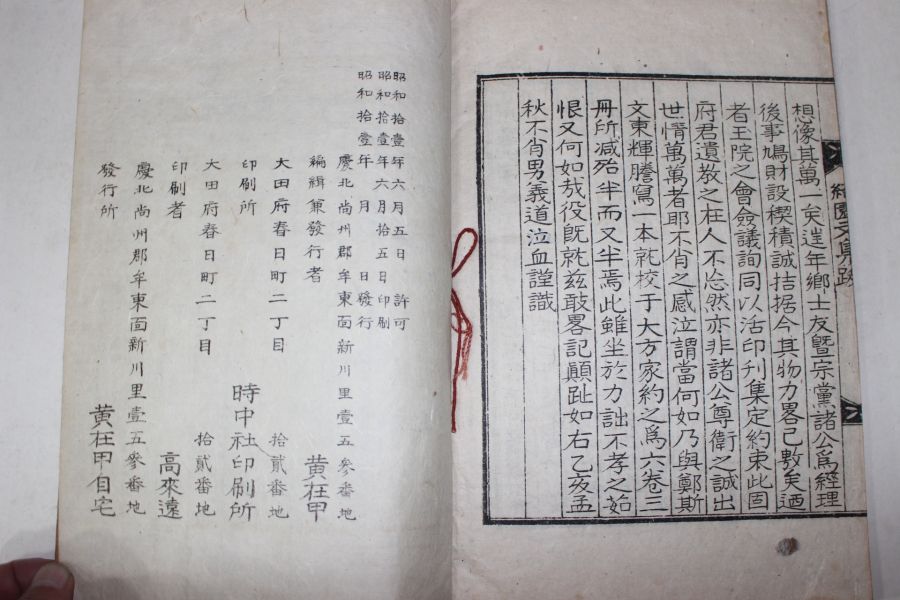 想像其萬一矣迬年鄉士友曁宗黨諸公爲經理
後事鳩財設稧積誠拮据今其物力畧已敷矣迺
者玉院之會僉議詢同以活印刊集定約束此固
府君遺敎之在人不忘然亦非諸公尊衛之誠出
世悁萬萬者耶不肖之感泣謂當何如乃與鄭斯
文東輝謄寫一本就校于大方家約之爲六卷三
冊所减殆半而又半焉此雖坐於力詘不孝之茹
恨又何如哉役旣就玆敢畧記顚趾如右乙亥孟
秋不肖男義道泣血謹識
園文集跋
昭和拾壹年六月五日 許可
昭和拾壹年六月拾五日印刷
昭和拾壹年 月 日發行
慶北尚州郡牟東面新川里壹五參番地
編緝兼發行者 黄在甲
大田府春日町二丁目 拾貳番地
印刷所 時中社印刷所
大田府春日町二丁目 拾貳番地
印刷者 高來遠
慶北尚州郡牟東面新川里壹五參番地
發行所 黄在甲自宅